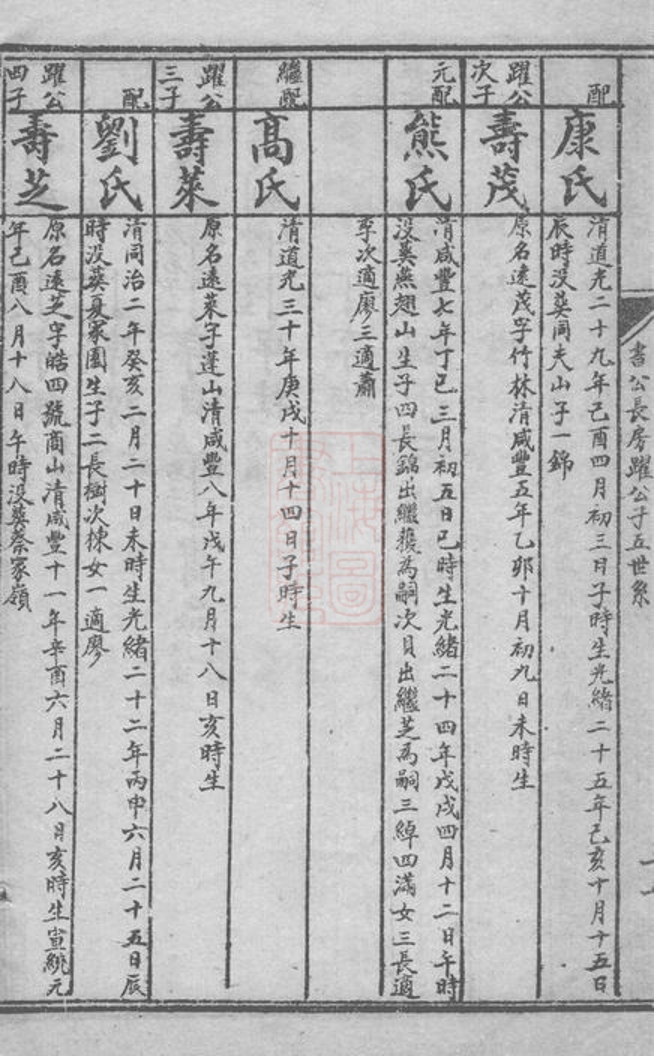 書公長房躍公子五世系
配
康氏
清道光二十九年己酉四月初三日子時生光緒二十五年己亥十月十五日
辰時没葬同夫山子一錦
躍公
次子
壽茂
原名遠茂字竹林清咸豐五年乙卯十月初九日未時生
元配
熊氏
清咸豐七年丁巳三月初五日巳時生光緒二十四年戊戌四月十二日午時
没葬燕翅山生子四長錦出繼獲為嗣次貝出繼芝為嗣三綽四滿女三長適
李次適廖三適蕭
繼配
高氏
清道光三十年庚戌十月十四日子時生
躍公
三子
壽萊
原名遠萊字蓬山清咸豐八年戊午九月十八日亥時生
配
劉氏
清同治二年癸亥二月二十日未時生光緒二十二年丙申六月二十五日辰
時没葬夏家園生子二長樹次棟女一適廖
躍公
四子
壽芝
原名遠芝字皓四號商山清咸豐十一年辛酉六月二十八日亥時生宣統元
年己酉八月十八日午時没葬蔡家嶺